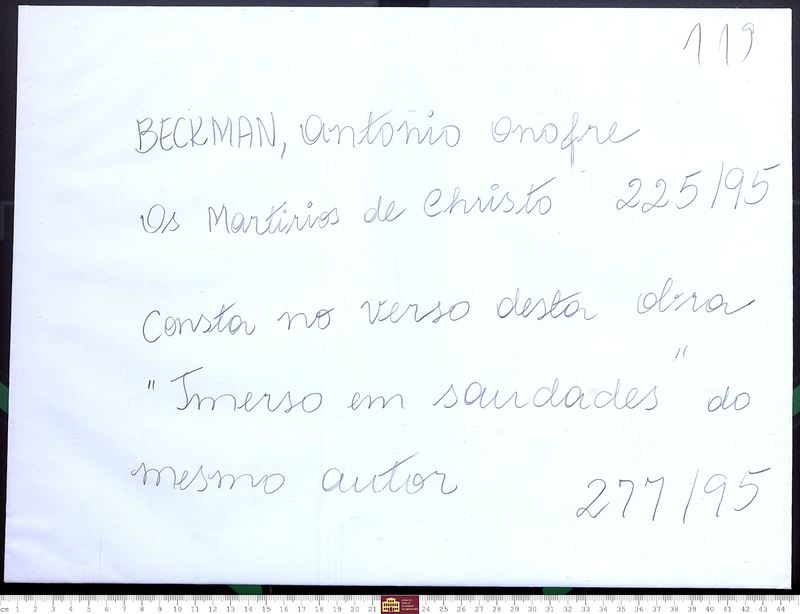 119
BECKMAN, Antonio Onofre
Os Martirios de Christo 225/95
Consta no verso desta obra
"Imerso em saudades" do
mesmo autor 277/95
cm 1 2 3 4 5 6 7 8 9 10 11 12 13 14 15 16 17 18 19 20 21 24 25 26 27 28 29 30 31 32 33 34 35 36 37 38 39 40 41 42 43 44